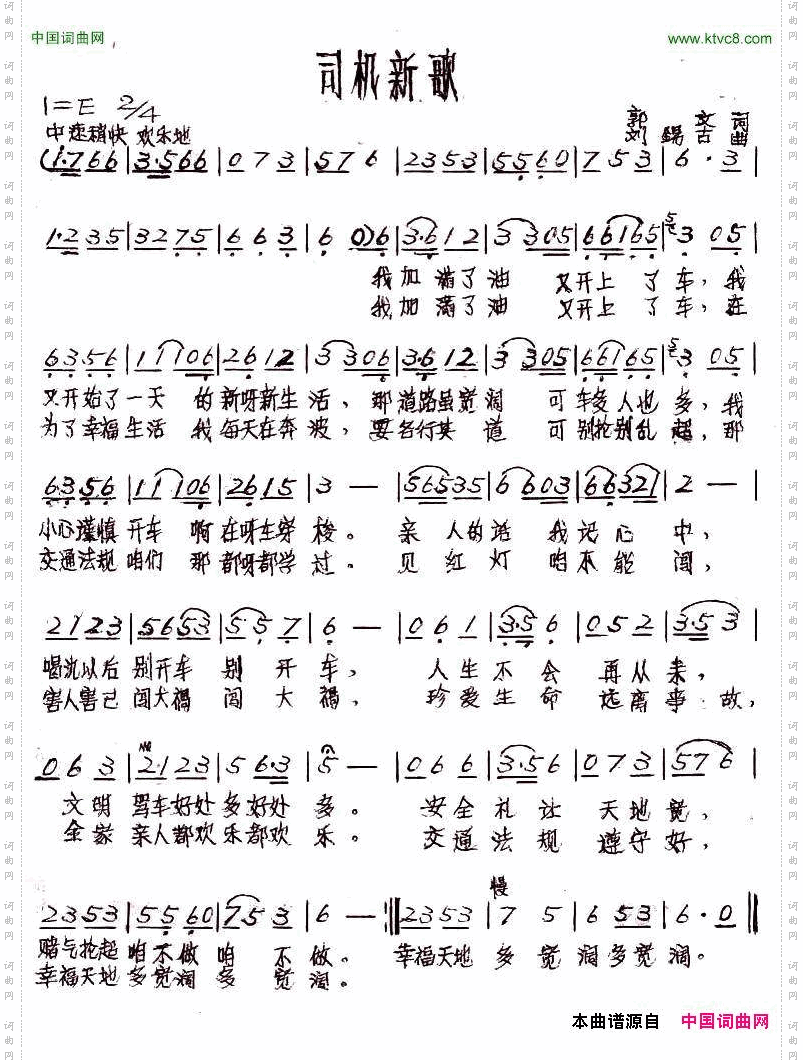 中国词曲网
www.ktvc8.com
司机新歌
1=E 2/4
郭文词
中速稍快 欢乐地
刘锡古曲
(1·766|3·566|073|576|2353|5560|753|6·3|
1·235|3275|663|60)6|3·612|3305|66165|3 05|
我加满了油 又开上了车,我
我加满了油 又开上了车,在
6356|11106|2612|3306|3·612|3305|66165|3 05|
又开始了一天 的新呀新生活,那道路虽宽阔 可车多人也多,我
为了幸福生活 我每天在奔波,要各行其道 可别抢别乱超,那
6·356|11106|2615|3—|56535|6603|66321|2—|
小心谨慎开车 啊在呀在穿梭。亲人的话 我记心中,
交通法规咱们 那都呀都学过。见红灯 咱不能闯,
2123|5653|5·57|6—|061|3·56|052|3·53|
喝洗以后别开车 别开车,人生不会再从来,
害人害己闯大祸 闯大祸,珍爱生命远离事故,
063|2·123|56·3|5—|066|3·56|073|576|
文明驾车好处多好处多。安全礼让天地宽,
全家亲人都欢乐都欢乐。交通法规遵守好,
慢
2353|5560|753|6—:‖2353|75|653|6·0‖
赌气抢超咱不做咱不做。幸福天地多宽阔多宽阔。
幸福天地多宽阔多宽阔。
本曲谱源自 中国词曲网